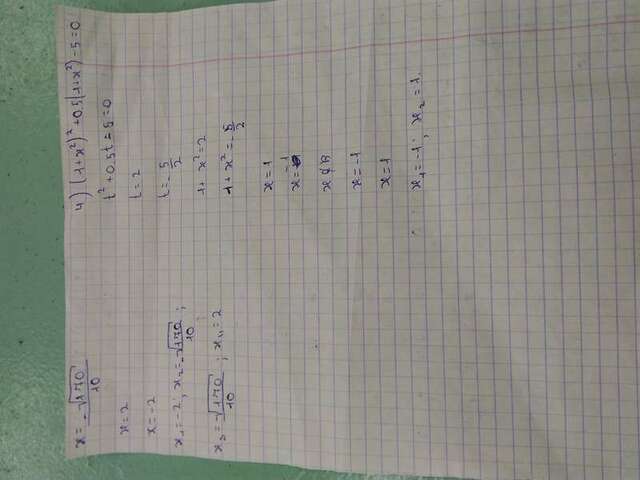 x = -√170/10
x = 2
x = -2
x₁ = -2; x₂ = -√170/10;
x₃ = √170/10; x₄ = 2
4) (1+x²)² + 0,5(1+x²) - 5 = 0
t² + 0,5t - 5 = 0
t = 2
t = -5/2
1 + x² = 2
1 + x² = -5/2
x = 1
x = -1
x ∉ R
x = -1
x = 1
x₁ = -1; x₂ = 1